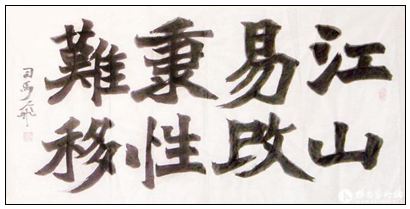 江山
易改
秉性
難移
司馬飛